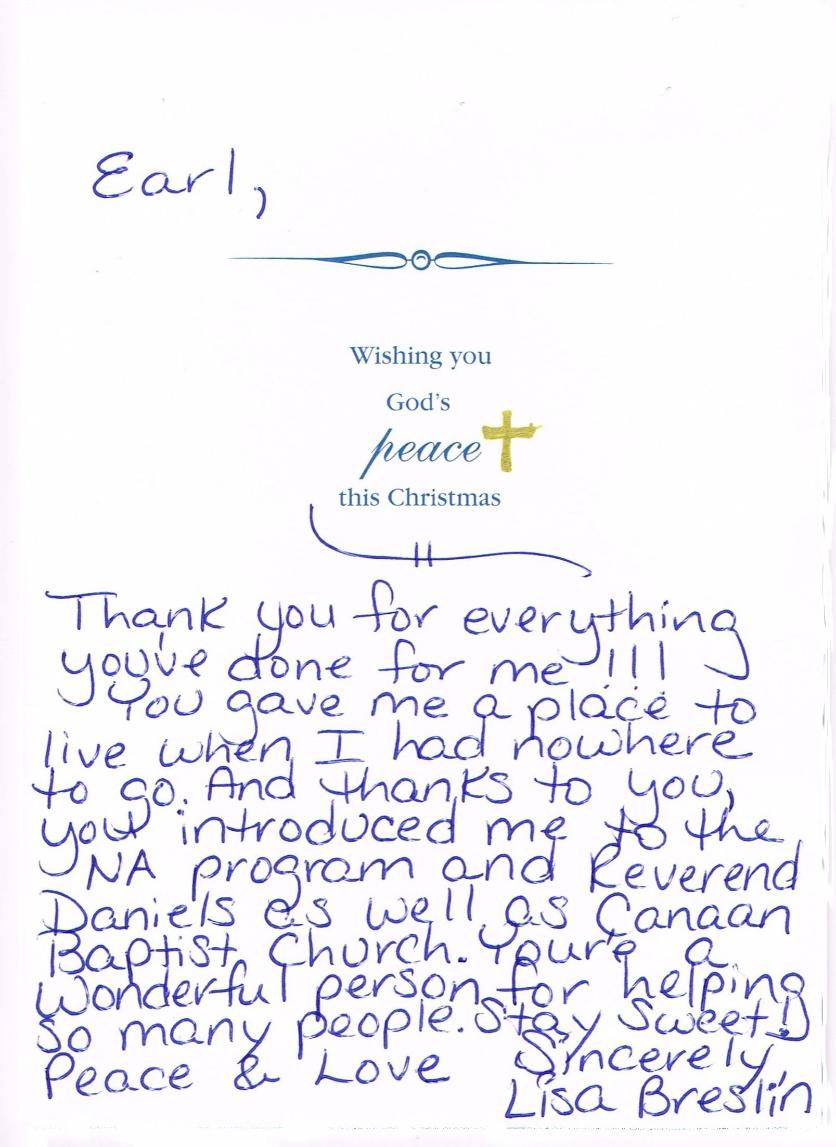 Earl,
Wishing you
God's
peace
this Christmas
Thank you for everything
you've done for me !!!
You gave me a place to
live when I had nowhere
to go. And thanks to you,
you introduced me to the
NA program and Reverend
Daniels as well as Canaan
Baptist Church. You're a
wonderful person for helping
so many people. Stay Sweet!
Peace & Love Sincerely,
Lisa Breslin